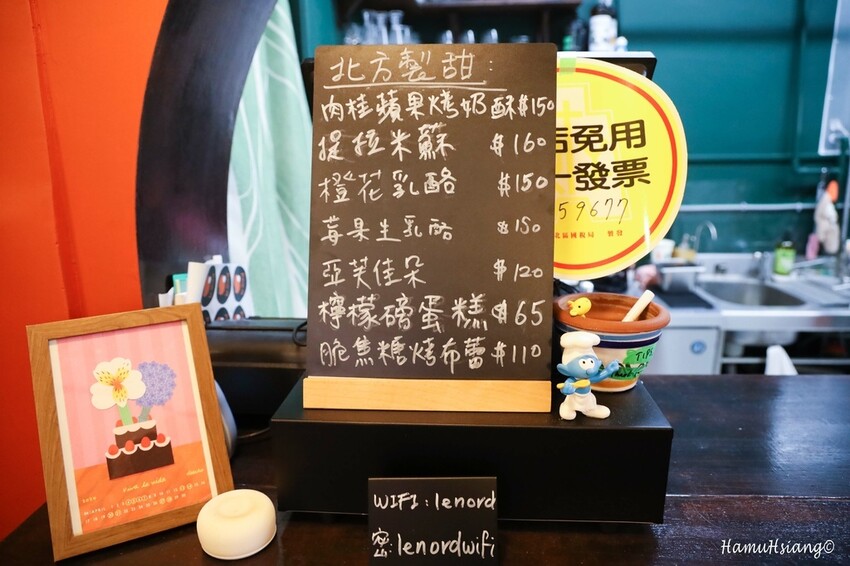 北方製甜:
肉桂蘋果烤奶酥$150
提拉米蘇 $160
橙花乳酪 $150
莓果生乳酪 $150
亞芙佳朵 $120
檸檬磅蛋糕 $65
脆焦糖烤布蕾 $110
免用
發票
59677
TIPS
WIFI:lenord
密:lenordwifi
HamuHsiang©